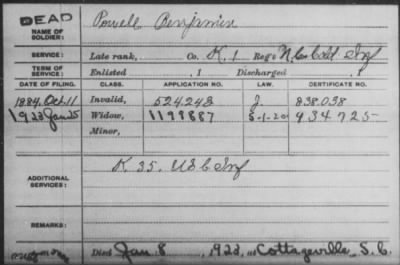 DEAD
NAME OF SOLDIER: Powell Benjamin
SERVICE: Late rank, Co. K, 1 Reg't N.C. Cold Inf
TERM OF SERVICE: Enlisted , 1 Discharged , 1
DATE OF FILING. CLASS. APPLICATION NO. LAW. CERTIFICATE NO.
1884, Oct. 11 Invalid, 524248 J. 838.038
1923 Jan 25 Widow, 1198887 5-1-20 934725
Minor,
ADDITIONAL SERVICES: K 35. U S C Inf
REMARKS:
Died Jan. 8, 1923, at Cottageville, S.C.